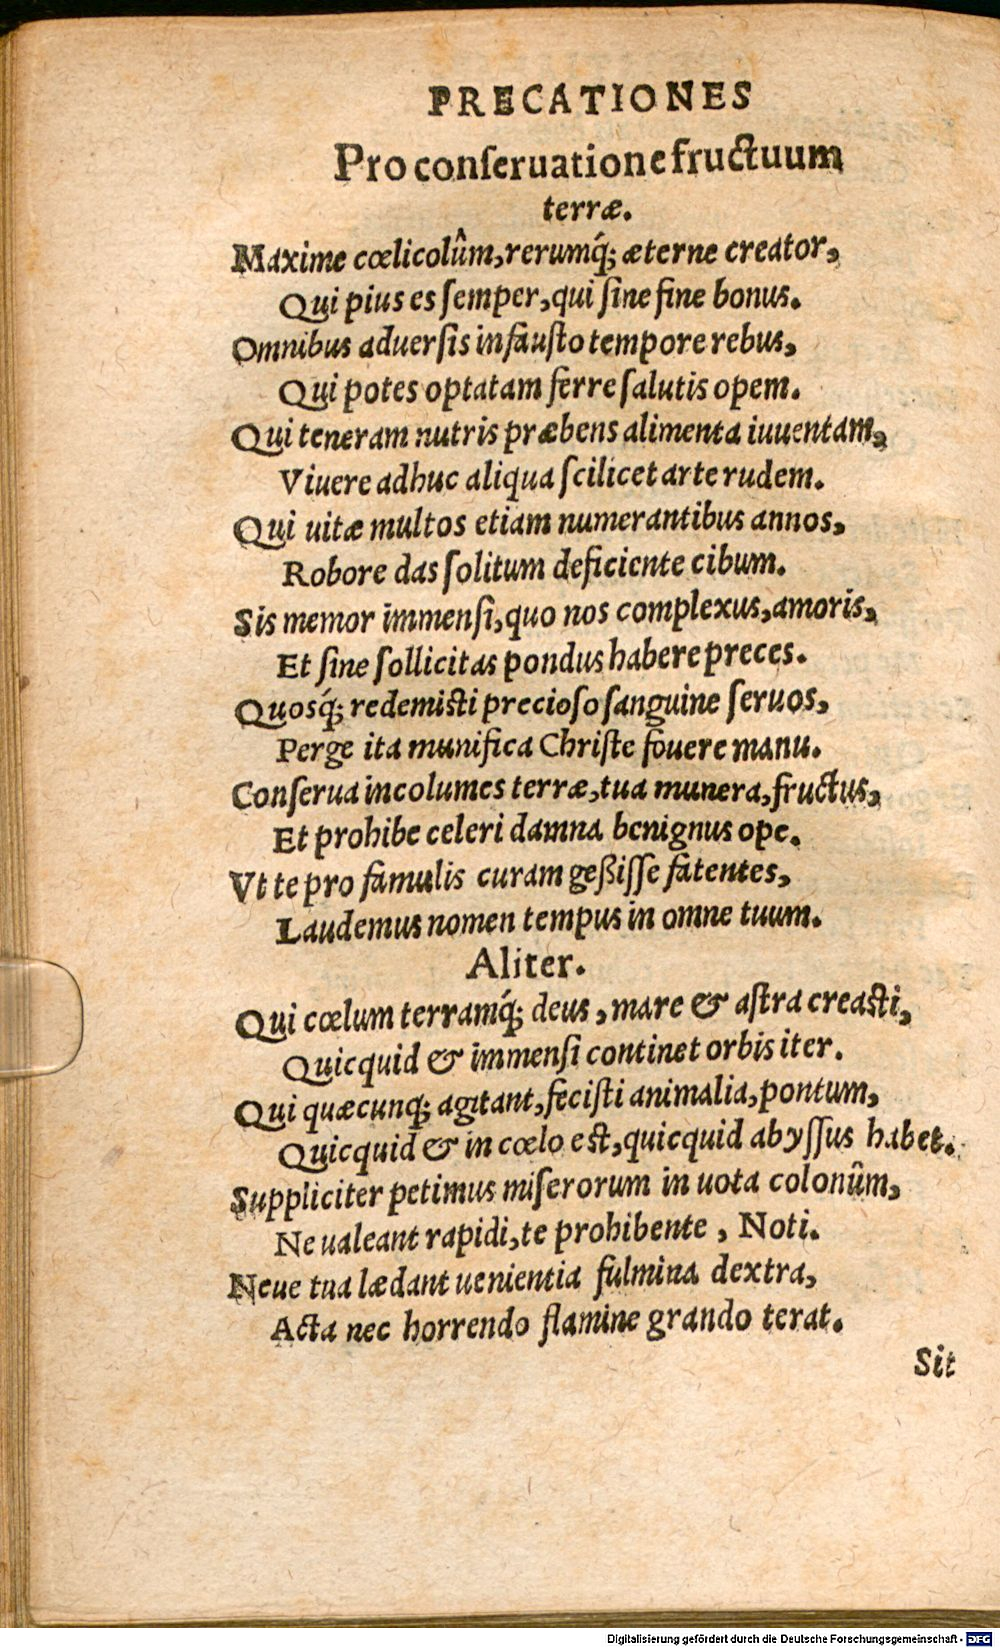 PRECATIONES
Pro conſeruatione fructuum
terræ.
Maxime cœlicolûm, rerumq́; æterne creator,
Qui pius es ſemper, qui ſine fine bonus.
Omnibus aduerſis infauſto tempore rebus,
Qui potes optatam ferre ſalutis opem.
Qui teneram nutris præbens alimenta iuuentam,
Viuere adhuc aliqua ſcilicet arte rudem.
Qui uitæ multos etiam numerantibus annos,
Robore das ſolitum deficiente cibum.
Sis memor immenſi, quo nos complexus, amoris,
Et ſine ſollicitas pondus habere preces.
Quosq́; redemisti precioſo ſanguine ſeruos,
Perge ita munifica Chriſte fouere manu.
Conſerua incolumes terræ, tua munera, fructus,
Et prohibe celeri damna benignus ope.
Vt te pro famulis curam geßiſſe fatentes,
Laudemus nomen tempus in omne tuum.
Aliter.
Qui cœlum terramq́; deus, mare & aſtra creasti,
Quicquid & immenſi continet orbis iter.
Qui quæcunq; agitant, feciſti animalia, pontum,
Quicquid & in cœlo est, quicquid abyſſus habet.
Suppliciter petimus miſerorum in uota colonûm,
Ne ualeant rapidi, te prohibente, Noti.
Neue tua lædant uenientia fulmina dextra,
Acta nec horrendo flamine grando terat.
Sit
Digitalisierung gefördert durch die Deutsche Forschungsgemeinschaft - DFG